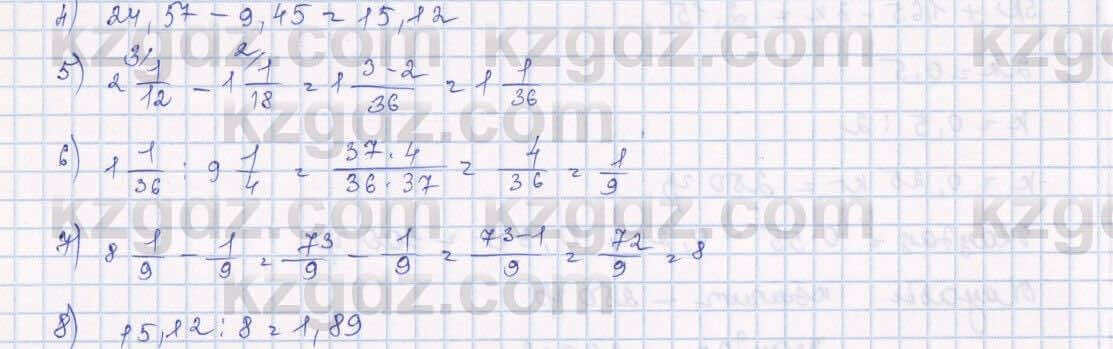 4) 24,57 - 9,45 = 15,12
5) 2 3/ 1/12 - 1 2/ 1/18 = 1 (3-2)/36 = 1 1/36
6) 1 1/36 : 9 1/4 = (37·4)/(36·37) = 4/36 = 1/9
7) 8 1/9 - 1/9 = 73/9 - 1/9 = (73-1)/9 = 72/9 = 8
8) 15,12 : 8 = 1,89
kzgdz.com
kzgdz.com
kzgdz.com
kzgdz.com
kzgdz.com